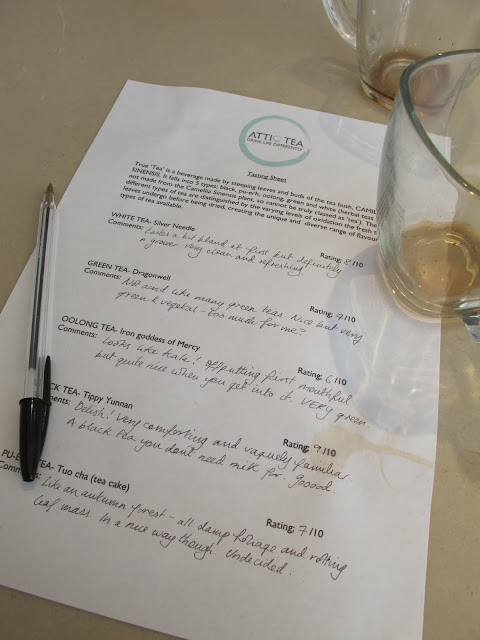 ATTIC TEA
DRINK LIKE DIFFERENTLY
Tasting Sheet
True 'Tea' is a beverage made by steeping leaves and buds of the tea bush, CAMEL
SINENSIS. It falls into 5 types; black, pu-erh, oolong, green and white (herbal teas
not made from the Camellia Sinensis plant, so cannot be truly classed as 'tea'). The
different types of tea are distinguished by the varying levels of oxidation the fresh
leaves undergo before being dried, creating the unique and diverse range of flavour
types of tea available.
WHITE TEA- Silver Needle
Rating: 8/10
Comments: Tastes a bit bland at first but definitely
a grower. very clean and refreshing!
GREEN TEA- Dragonwell
Rating: 7/10
Comments: Not acrid like many green teas. Nice but very
green & vegetal - too much for me?
OOLONG TEA- Iron goddess of Mercy
Rating: 6/10
Comments: Looks like kale! Offputting first mouthful
but quite nice when you get into it. VERY green
CK TEA- Tippy Yunnan
Rating: 9/10
ments: Delish! Very comforting and vaguely familiar.
A black tea you don't need milk for. Goood
PU-E TEA- Tuo cha (tea cake)
Rating: 7/10
Comments: Like an autumn forest - all damp foliage and rotting
leaf mass. In a nice way though. Undecided.